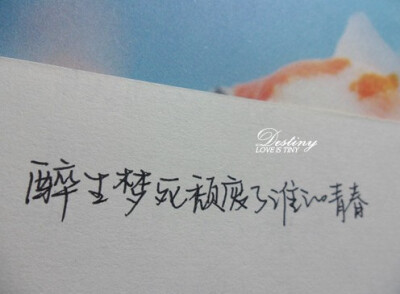 Destiny
LOVE IS TINY
醉生梦死颓废了谁的青春